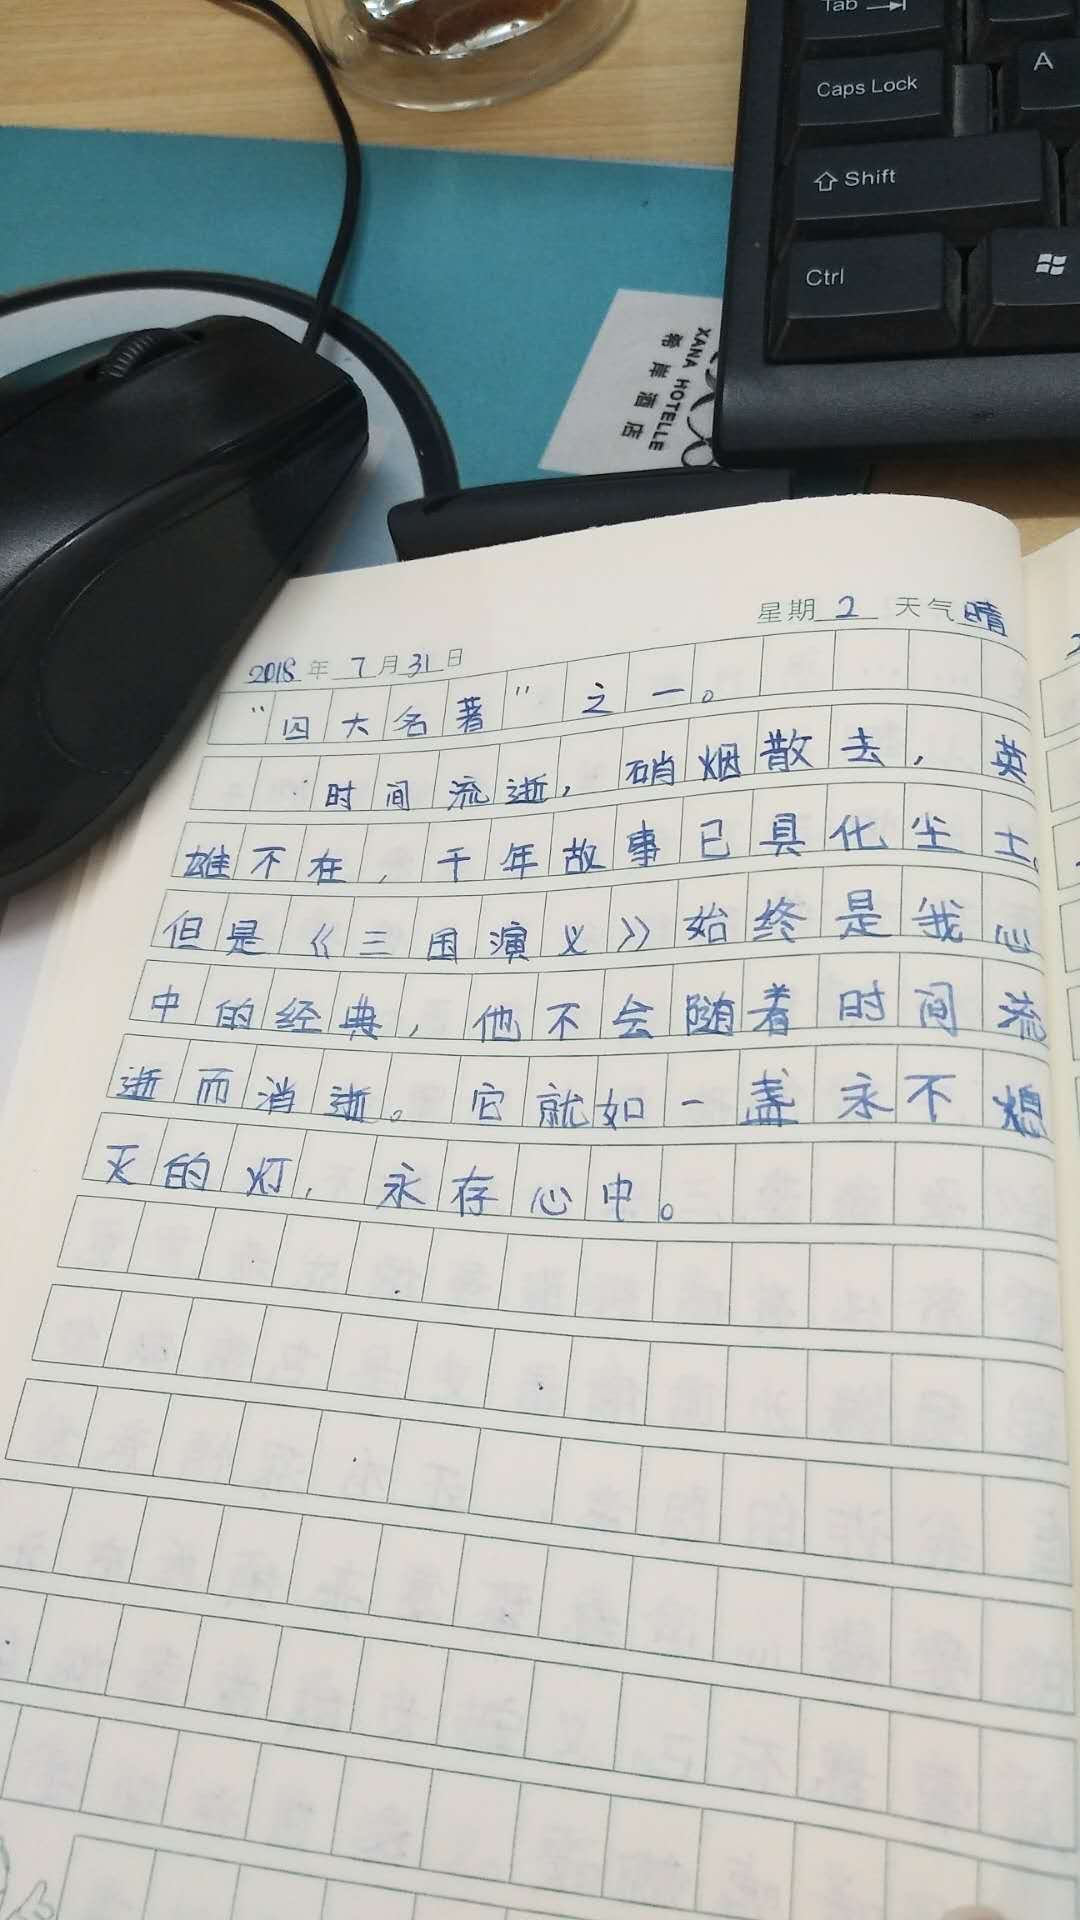 Tab
Caps Lock
A
Shift
Ctrl
XANA HOTELLE
希岸酒店
星期 2 天气 晴
2018 年 7 月 31 日
“四大名著”之一。
时间流逝，硝烟散去，英
雄不在，千年故事已具化尘土。
但是《三国演义》始终是我心
中的经典，他不会随着时间流
逝而消逝。它就如一盏永不熄
灭的灯，永存心中。